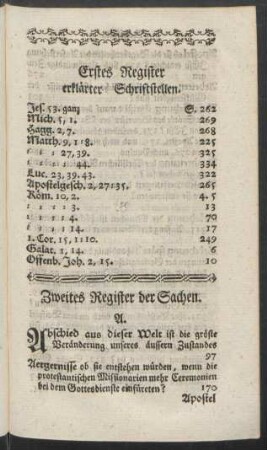 Erstes Register
erklärter Schriftstellen.
Jes. 53. ganz S. 262
Mich. 5, 1. 269
Hagg. 2, 7. 268
Matth. 9, 1=8. 225
= = 27, 39. 325
= = = 44. 334
Luc. 23, 39. 43. 322
Apostelgesch. 2, 27=35. 265
Röm. 10, 2. 4. 5
= = = 3. 13
= = = 4. 70
= = = 14. 17
1. Cor. 15, 1=10. 249
Galat. 1, 14. 6
Offenb. Joh. 2, 15. 10
Zweites Register der Sachen.
A.
Abschied aus dieser Welt ist die gröste
Veränderung unseres äussern Zustandes
97
Aergernisse ob sie entstehen würden, wenn die
protestantischen Missionarien mehr Ceremonien
bei dem Gottesdienste einfüreten? 170
Apostel